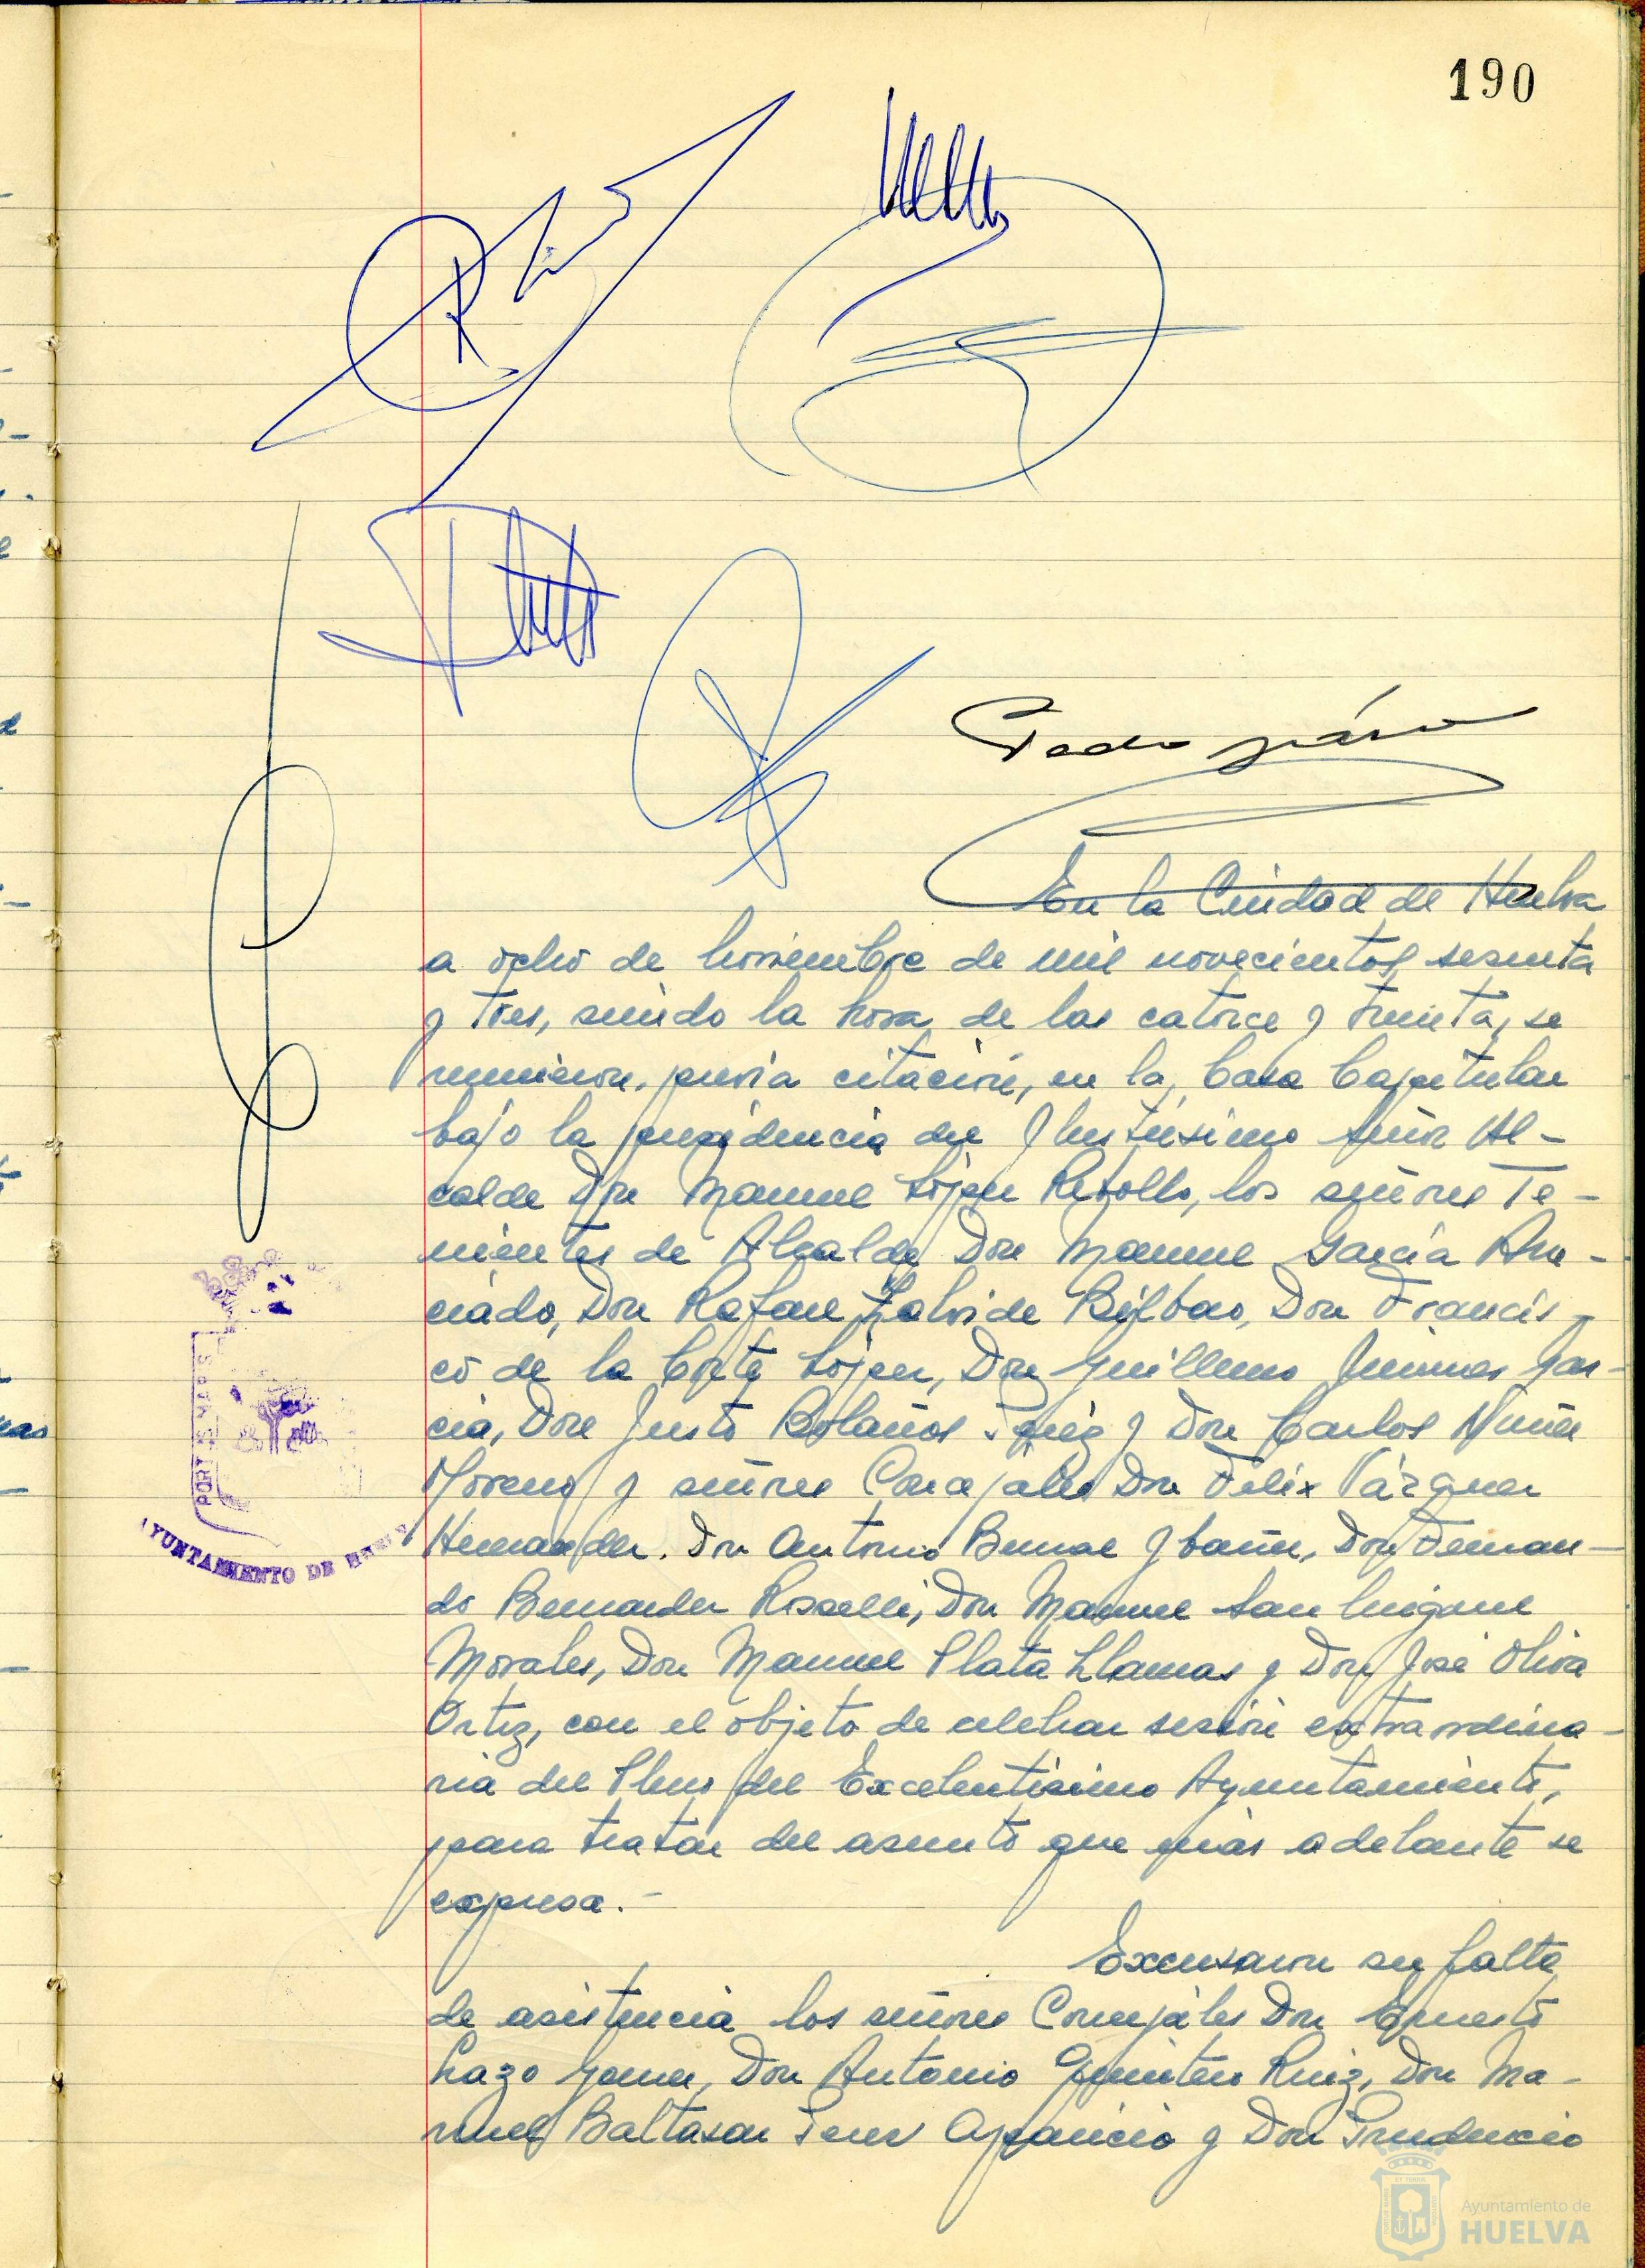 190
En la Ciudad de Huelva
a ocho de noviembre de mil novecientos sesenta
y tres, siendo la hora de las catorce y treinta, se
reunieron, previa citación, en la Casa Capitular
bajo la presidencia del Ilustrísimo señor Al-
calde Don Manuel López Rebollo, los señores Te-
nientes de Alcalde Don Manuel García
Don Rafael Bilbao, Don Francis-
co de la Corte López, Don Guillermo Jiménez Gar-
cía, Don Justo Bolaños y Don Carlos Núñez
Moreno y señores Concejales Don Félix Vázquez
Hernández, Don Antonio Bernal Ybañez, Don Fernan-
do Bernardez Don Manuel San Miguel
Morales, Don Manuel Plata Llamas y Don José Oliva
Ortiz, con el objeto de celebrar sesión extraordina-
ria del Pleno del Excelentísimo Ayuntamiento,
para tratar del asunto que más adelante se
expresa.-
Excusaron su falta
de asistencia los señores Concejales Don Ernesto
Lazo Don Antonio Quintero Ruiz, Don Ma-
nuel Baltasar Aparicio y Don Prudencio
PORT E MARIS
AYUNTAMIENTO DE
Ayuntamiento de
HUELVA